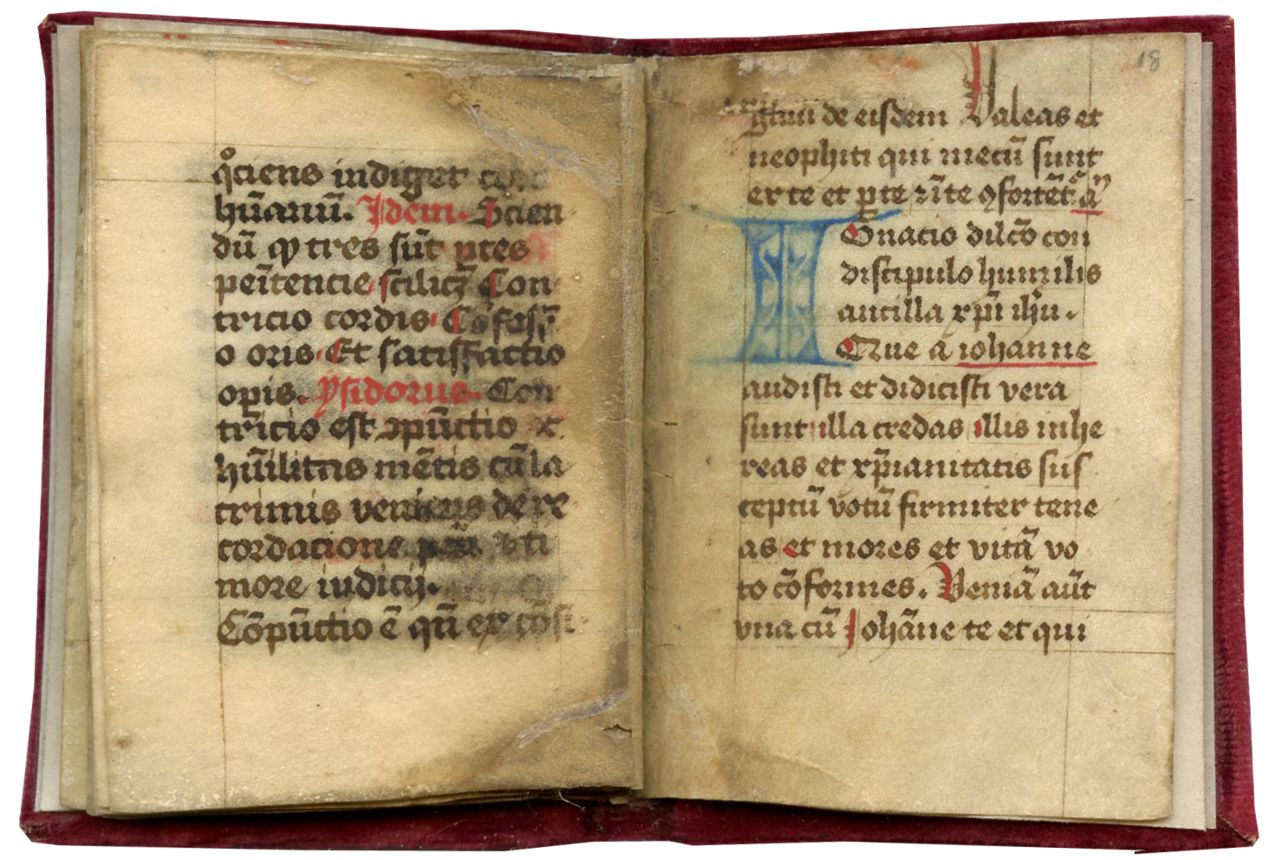 q̊ciens indiget
hūanū. Idem. Scien
dū ꝙ tres sūt ptes
peītencie scilicꝫ Con
tricio cordis. Cōfess
o oris. Et satisfactio
opis. ysidorus. Con
tricio est ꝯpūctio et
hūilitas mētis cū la
crimis veniens de re
cordacione ti
more iudicij.
Cōpūctio ē qn̄ ex cōsi
18
de eisdem Valeas et
neophiti qui mecū sunt
ex te et per te
I
Gnacio dilc̄o con
discipulo humilis
ancilla xp̄i ihu.
Que a iohanne
audisti et didicisti vera
sunt illa credas illis inhe
reas et xp̄ianitatis sus
ceptū votū firmiter tene
as et mores et vitā vo
to cōformes. Veniā aūt
vna cū Iohāne te et qui